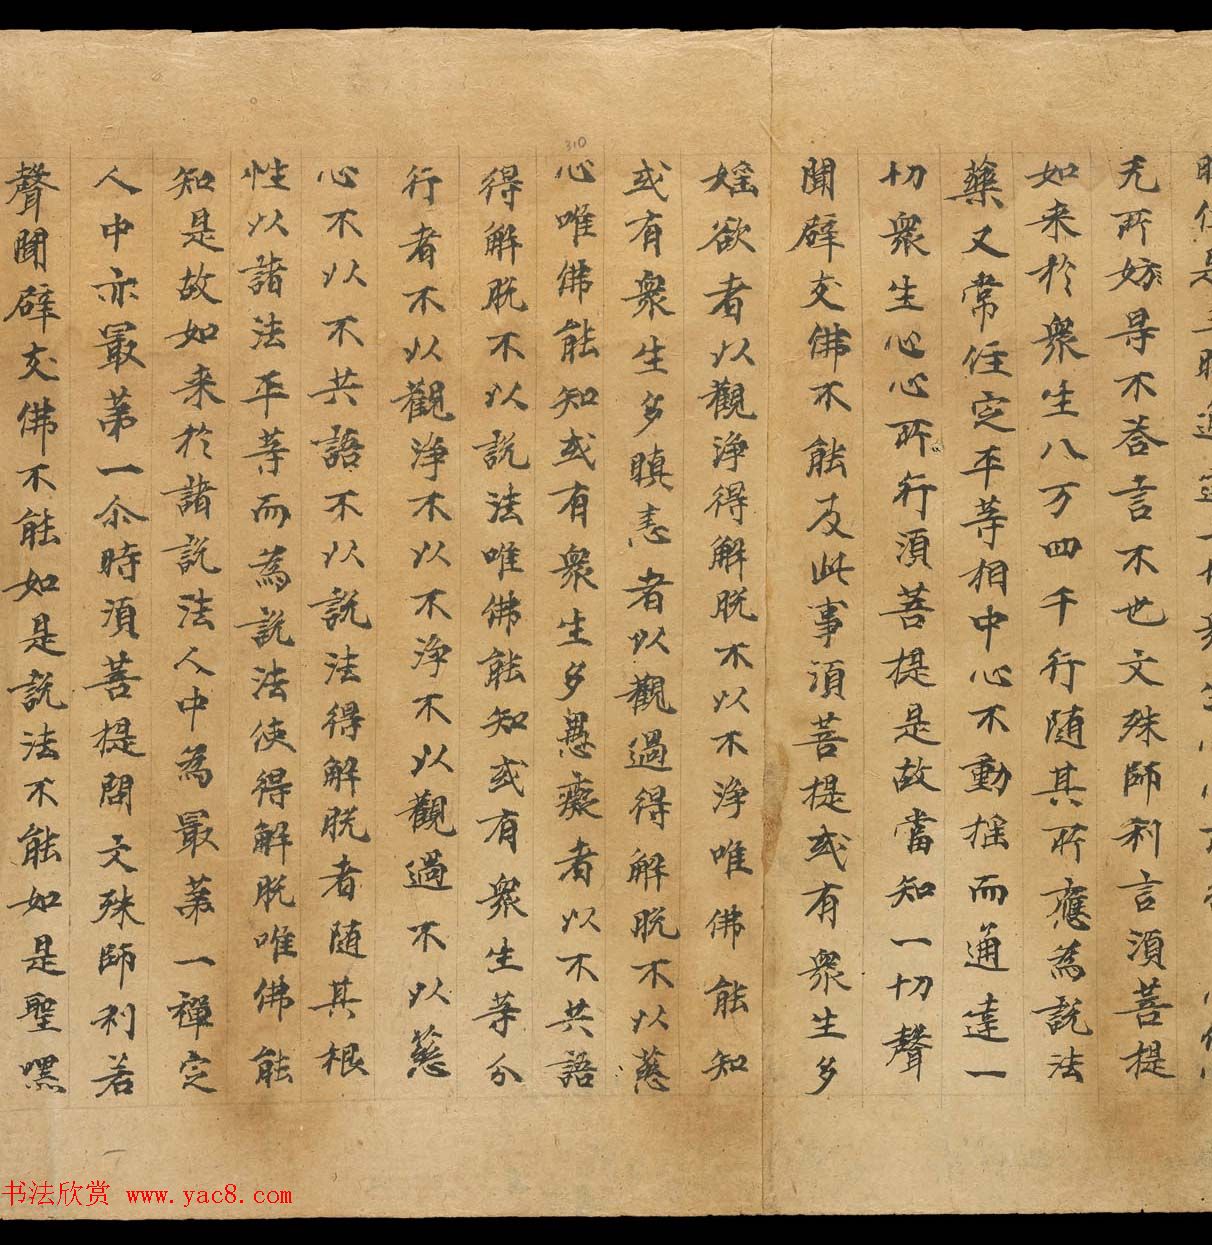 无所妨㝵不荅言不也文殊師利言湏菩提
如来於衆生八万四千行随其所應為說法
藥又常住定平䓁相中心不動揺而通達一
切衆生心心所行湏菩提是故當知一切聲
聞辟支佛不能及此事湏菩提或有衆生多
婬欲者以觀淨得解脫不以不淨唯佛能知
或有衆生多瞋恚者以觀過得解脫不以慈
心唯佛能知或有衆生多愚癡者以不共語
得解脫不以説法唯佛能知或有衆生䓁分
行者不以觀淨不以不淨不以觀過不以慈
心不以不共語不以説法得解脫者随其根
性以諸法平䓁而為説法使得解脫唯佛能
知是故如来於諸説法人中為冣苐一禪定
人中亦冣苐一尒時湏菩提問文殊師利若
聲聞辟支佛不能如是説法不能如是聖嘿
310
书法欣赏 www.yac8.com